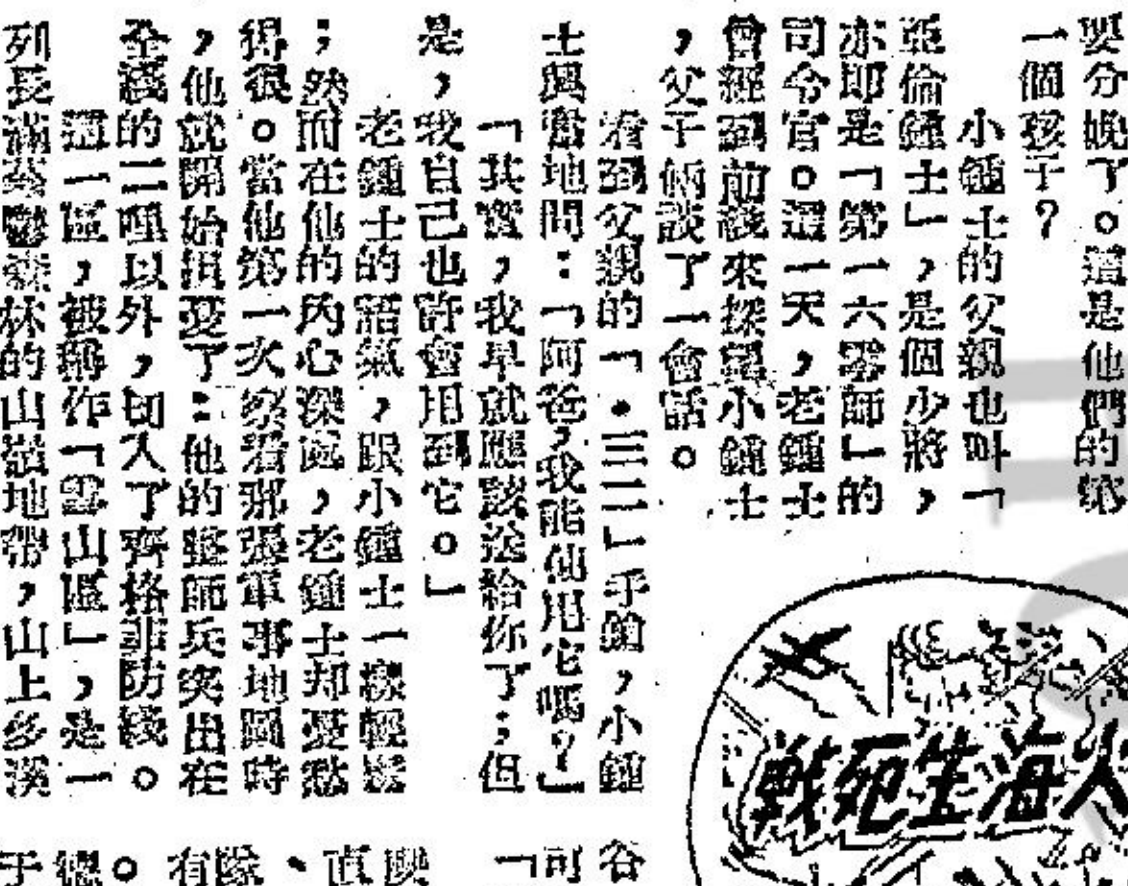 要分娩了。這是他們的第
一個孩子?
小鍾士的父親也叫「
亞倫鍾士」,是個少將,
亦即是「第一六零師」的
司令官。這一天,老鍾士
曾經到前線來探望小鍾士
,父子倆談了一會話。
看到父親的「・三二」手鎗,小鍾
士興奮地問:「阿爸,我能使用它嗎?」
「其實,我早就應該送給你了;但
是,我自己也許會用到它。」
老鍾士的語氣,跟小鍾士一樣輕鬆
;然而在他的內心深處,老鍾士却憂愁
得很。當他第一次察看那張軍事地圖時
,他就開始担憂了:他的整師兵突出在
全綫的二哩以外,切入了齊格菲防綫。
這一區,被稱作「雪山區」,是一
列長滿葱鬱森林的山嶺地帶,山上多溪
火海生死戰
谷
司「
直
、
隊
有
。
于